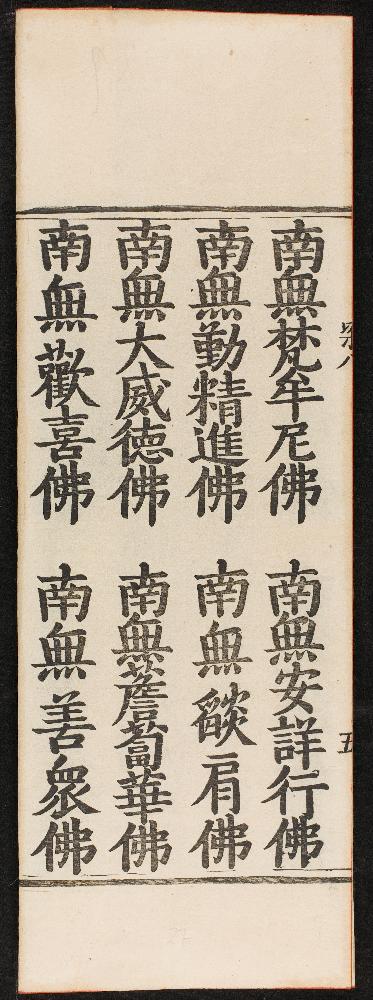 南無梵牟尼佛
南無安詳行佛
南無勤精進佛
南無燄肩佛
南無大威德佛
南無薝蔔華佛
南無歡喜佛
南無善眾佛
五